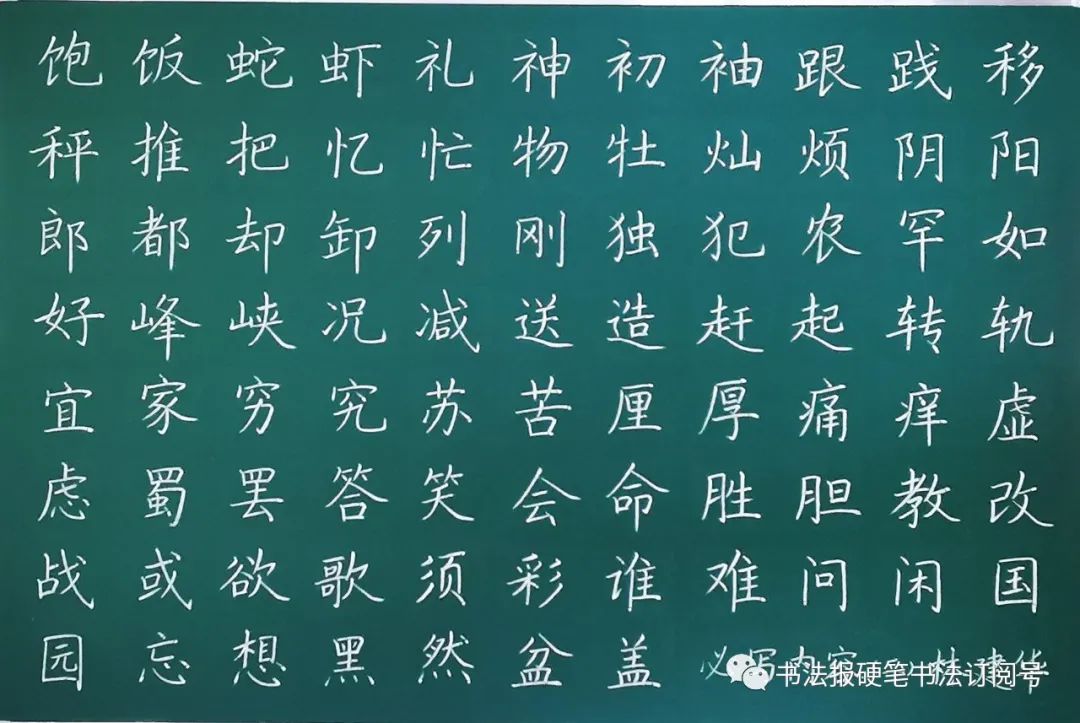 饱饭蛇虾礼神初袖跟践移
秤推把忆忙物牡灿烦阴阳
郎都却卸列刚独犯农罕如
好峰峡况减送造赶起转轨
宜家穷究苏苦厘厚痛痒虚
虑蜀罢答笑会命胜胆教改
战或欲歌须彩谁难问闲国
园忘想黑然盆盖 必写内容
书法报硬笔书法订阅号